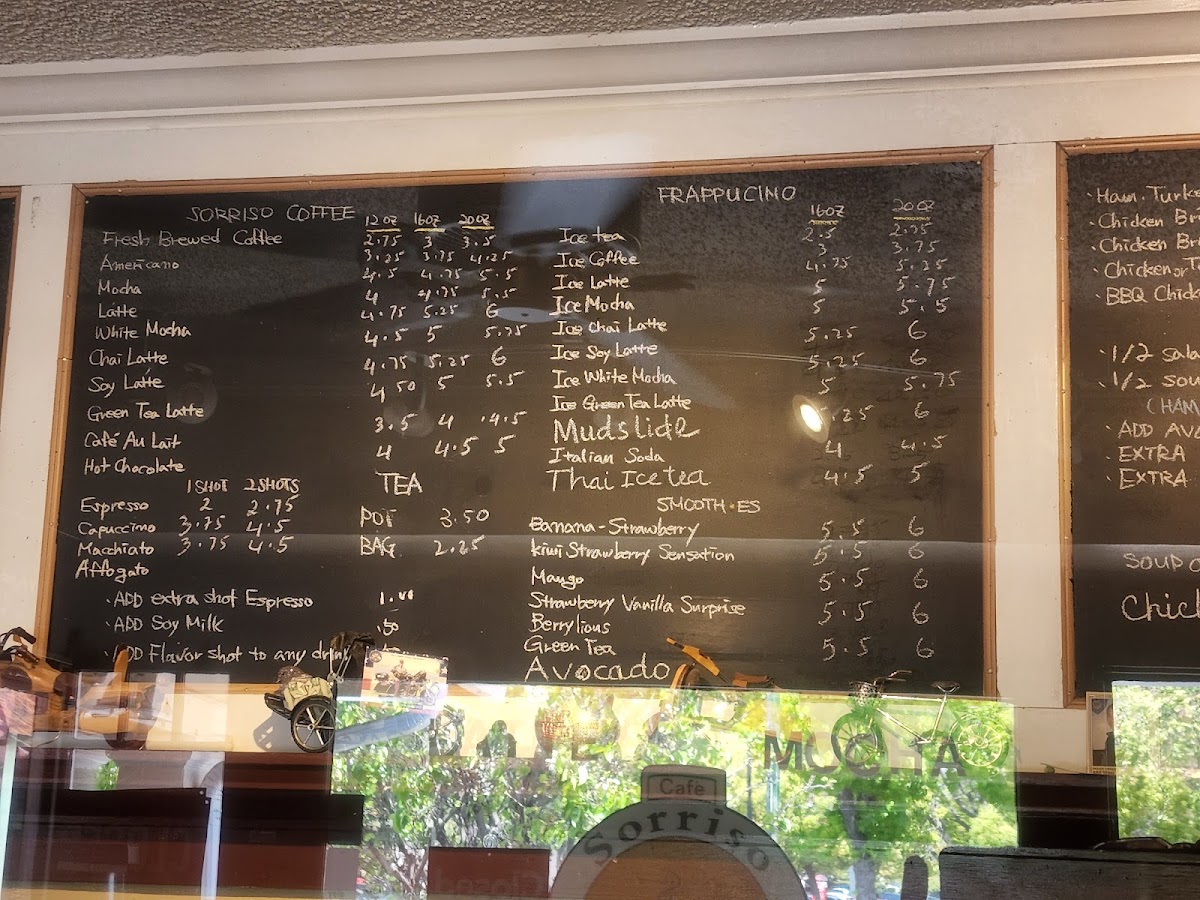 SORRISO COFFEE 12OZ 16OZ 20OZ
Fresh Brewed Coffee 2.75 3 3.5
Americano 3.25 3.75 4.25
Mocha 4.5 4.75 5.5
Latte 4 4.75 5.5
White Mocha 4.75 5.25 6
Chai Latte 4.5 5 5.75
Soy Latte 4.75 5.25 6
Green Tea Latte 4.50 5 5.5
Café Au Lait 3.5 4 4.5
Hot Chocolate 4 4.5 5
1 SHOT 2 SHOTS
Espresso 2 2.75
Capuccino 3.75 4.5
Macchiato 3.75 4.5
Affogato
TEA
POT 3.50
BAG 2.25
· ADD extra shot Espresso
· ADD Soy Milk .50
· ADD Flavor shot to any drink
FRAPPUCINO 16OZ 20OZ
Ice tea 2.5 2.75
Ice Coffee 3 3.75
Ice Latte 4.75 5.25
Ice Mocha 5 5.75
Ice Chai Latte 5 5.5
Ice Soy Latte 5.25 6
Ice White Mocha 5.25 6
Ice Green Tea Latte 5 5.75
Mudslide .25 6
Italian Soda 4 4.5
Thai Ice tea 4.5 5
SMOOTHIES
Banana-Strawberry 5.5 6
kiwi Strawberry Sensation 5.5 6
Mango 5.5 6
Strawberry Vanilla Surprise 5.5 6
Berrylious
Green Tea 5.5 6
Avocado
· Ham, Turke
· Chicken Br
· Chicken Br
· Chicken or
· BBQ Chick
· 1/2 sala
· 1/2 sou
(HAM
· ADD AV
· EXTRA
· EXTRA
SOUP O
Chick
MOCHA
Cafe
Sorriso